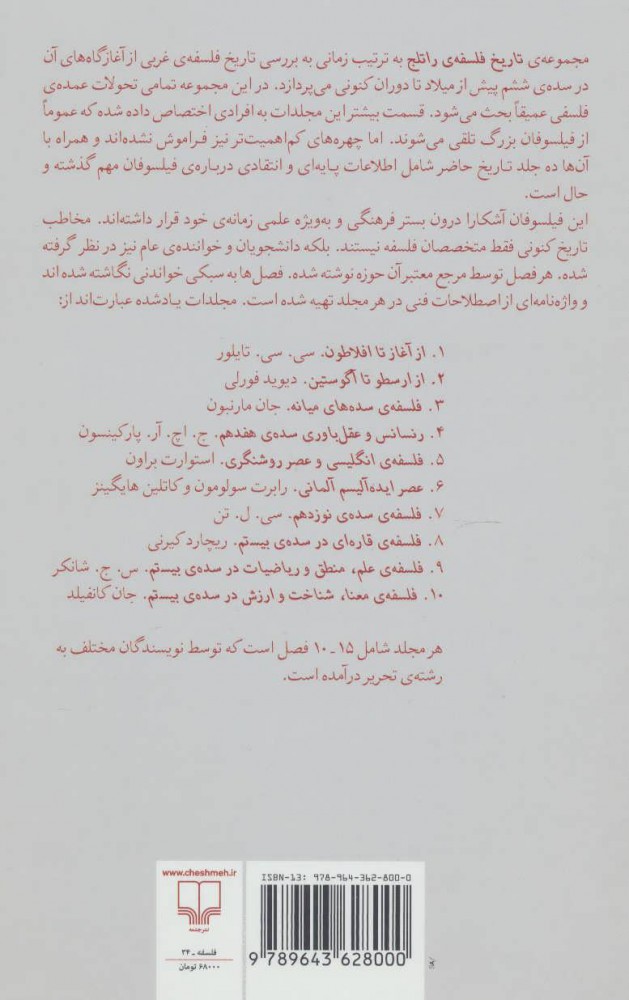 مجموعه‌ی تاریخ فلسفه‌ی راتلج به ترتیب زمانی به بررسی تاریخ فلسفه‌ی غربی از آغازگاه‌های آن
در سده‌ی ششم پیش از میلاد تا دوران کنونی می‌پردازد. در این مجموعه تمامی تحولات عمده‌ی
فلسفی عمیقاً بحث می‌شود. قسمت بیشتر این مجلدات به افرادی اختصاص داده شده که عموماً
از فیلسوفان بزرگ تلقی می‌شوند. اما چهره‌های کم‌اهمیت‌تر نیز فراموش نشده‌اند و همراه با
آن‌ها ده جلد تاریخ حاضر شامل اطلاعات پایه‌ای و انتقادی درباره‌ی فیلسوفان مهم گذشته و
حال است.
این فیلسوفان آشکارا درون بستر فرهنگی و به‌ویژه علمی زمانه‌ی خود قرار داشته‌اند. مخاطب
تاریخ کنونی فقط متخصصان فلسفه نیستند. بلکه دانشجویان و خواننده‌ی عام نیز در نظر گرفته
شده. هر فصل توسط مرجع معتبر آن حوزه نوشته شده. فصل‌ها به سبکی خواندنی نگاشته شده اند
و واژه‌نامه‌ای از اصطلاحات فنی در هر مجلد تهیه شده است. مجلدات یادشده عبارت‌اند از:
۱. از آغاز تا افلاطون. سی. سی. تایلور
۲. از ارسطو تا آگوستین. دیوید فورلی
۳. فلسفه‌ی سده‌های میانه. جان مارنبون
۴. رنسانس و عقل‌باوری سده‌ی هفدهم. ج. اچ. آر. پارکینسون
۵. فلسفه‌ی انگلیسی و عصر روشنگری. استوارت براون
۶. عصر ایده‌آلیسم آلمانی. رابرت سولومون و کاتلین هایگینز
۷. فلسفه‌ی سده‌ی نوزدهم. سی. ل. تن
۸. فلسفه‌ی قاره‌ای در سده‌ی بیستم. ریچارد کیرنی
۹. فلسفه‌ی علم، منطق و ریاضیات در سده‌ی بیستم. س. ج. شانکر
۱۰. فلسفه‌ی معنا، شناخت و ارزش در سده‌ی بیستم. جان کانفیلد
هر مجلد شامل ۱۵-۱۰ فصل است که توسط نویسندگان مختلف به
رشته‌ی تحریر درآمده است.
www.cheshmeh.ir
نشرچشمه
فلسفه - ۲۴
۶۸۰۰۰ تومان
ISBN-13: 978-964-362-800-0
9 789643 628000